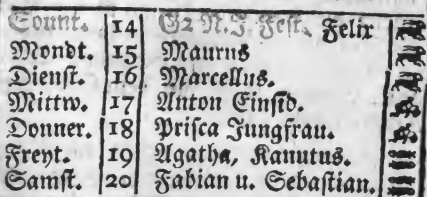 Sount. 14 G2 N. J. Fest. Felix
Mondt. 15 Maurus
Dienst. 16 Marcellus.
Mittw. 17 Anton Einsid.
Donner. 18 Prisca Jungfrau.
Freyt. 19 Agatha, Kanutus.
Samst. 20 Fabian u. Sebastian.